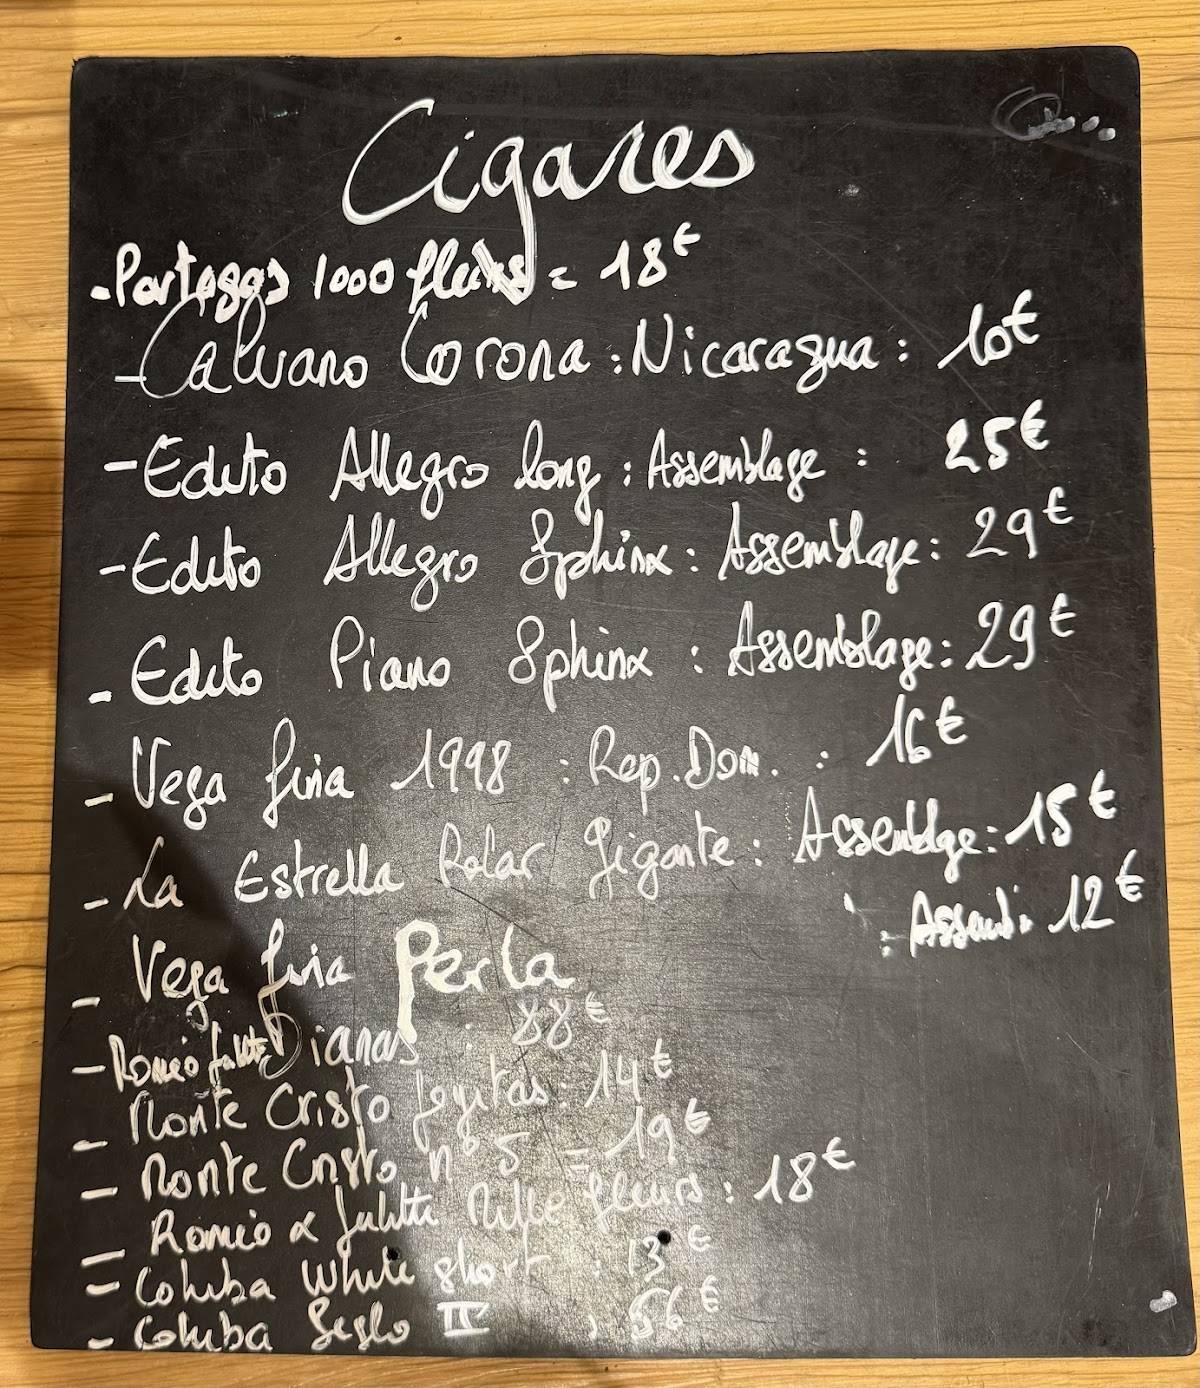 Cigares
- Partagas 1000 fleurs = 18€
- Calvano Corona : Nicaragua : 10€
- Edito Allegro long : Assemblage : 25€
- Edito Allegro Sphinx : Assemblage : 29€
- Edito Piano Sphinx : Assemblage : 29€
- Vega fina 1998 : Rep. Dom. : 16€
- La Estrella Polar Gigante : Assemblage : 15€
- Vega fina Perla : 12€
- Romeo Juliette Dianas : 88€
- Monte Cristo Joyitas : 14€
- Monte Cristo n° 5 = 19€
- Romeo & Juliette Mille fleurs : 18€
- Cohiba White short : 13€
- Cohiba Siglo IV : 56€